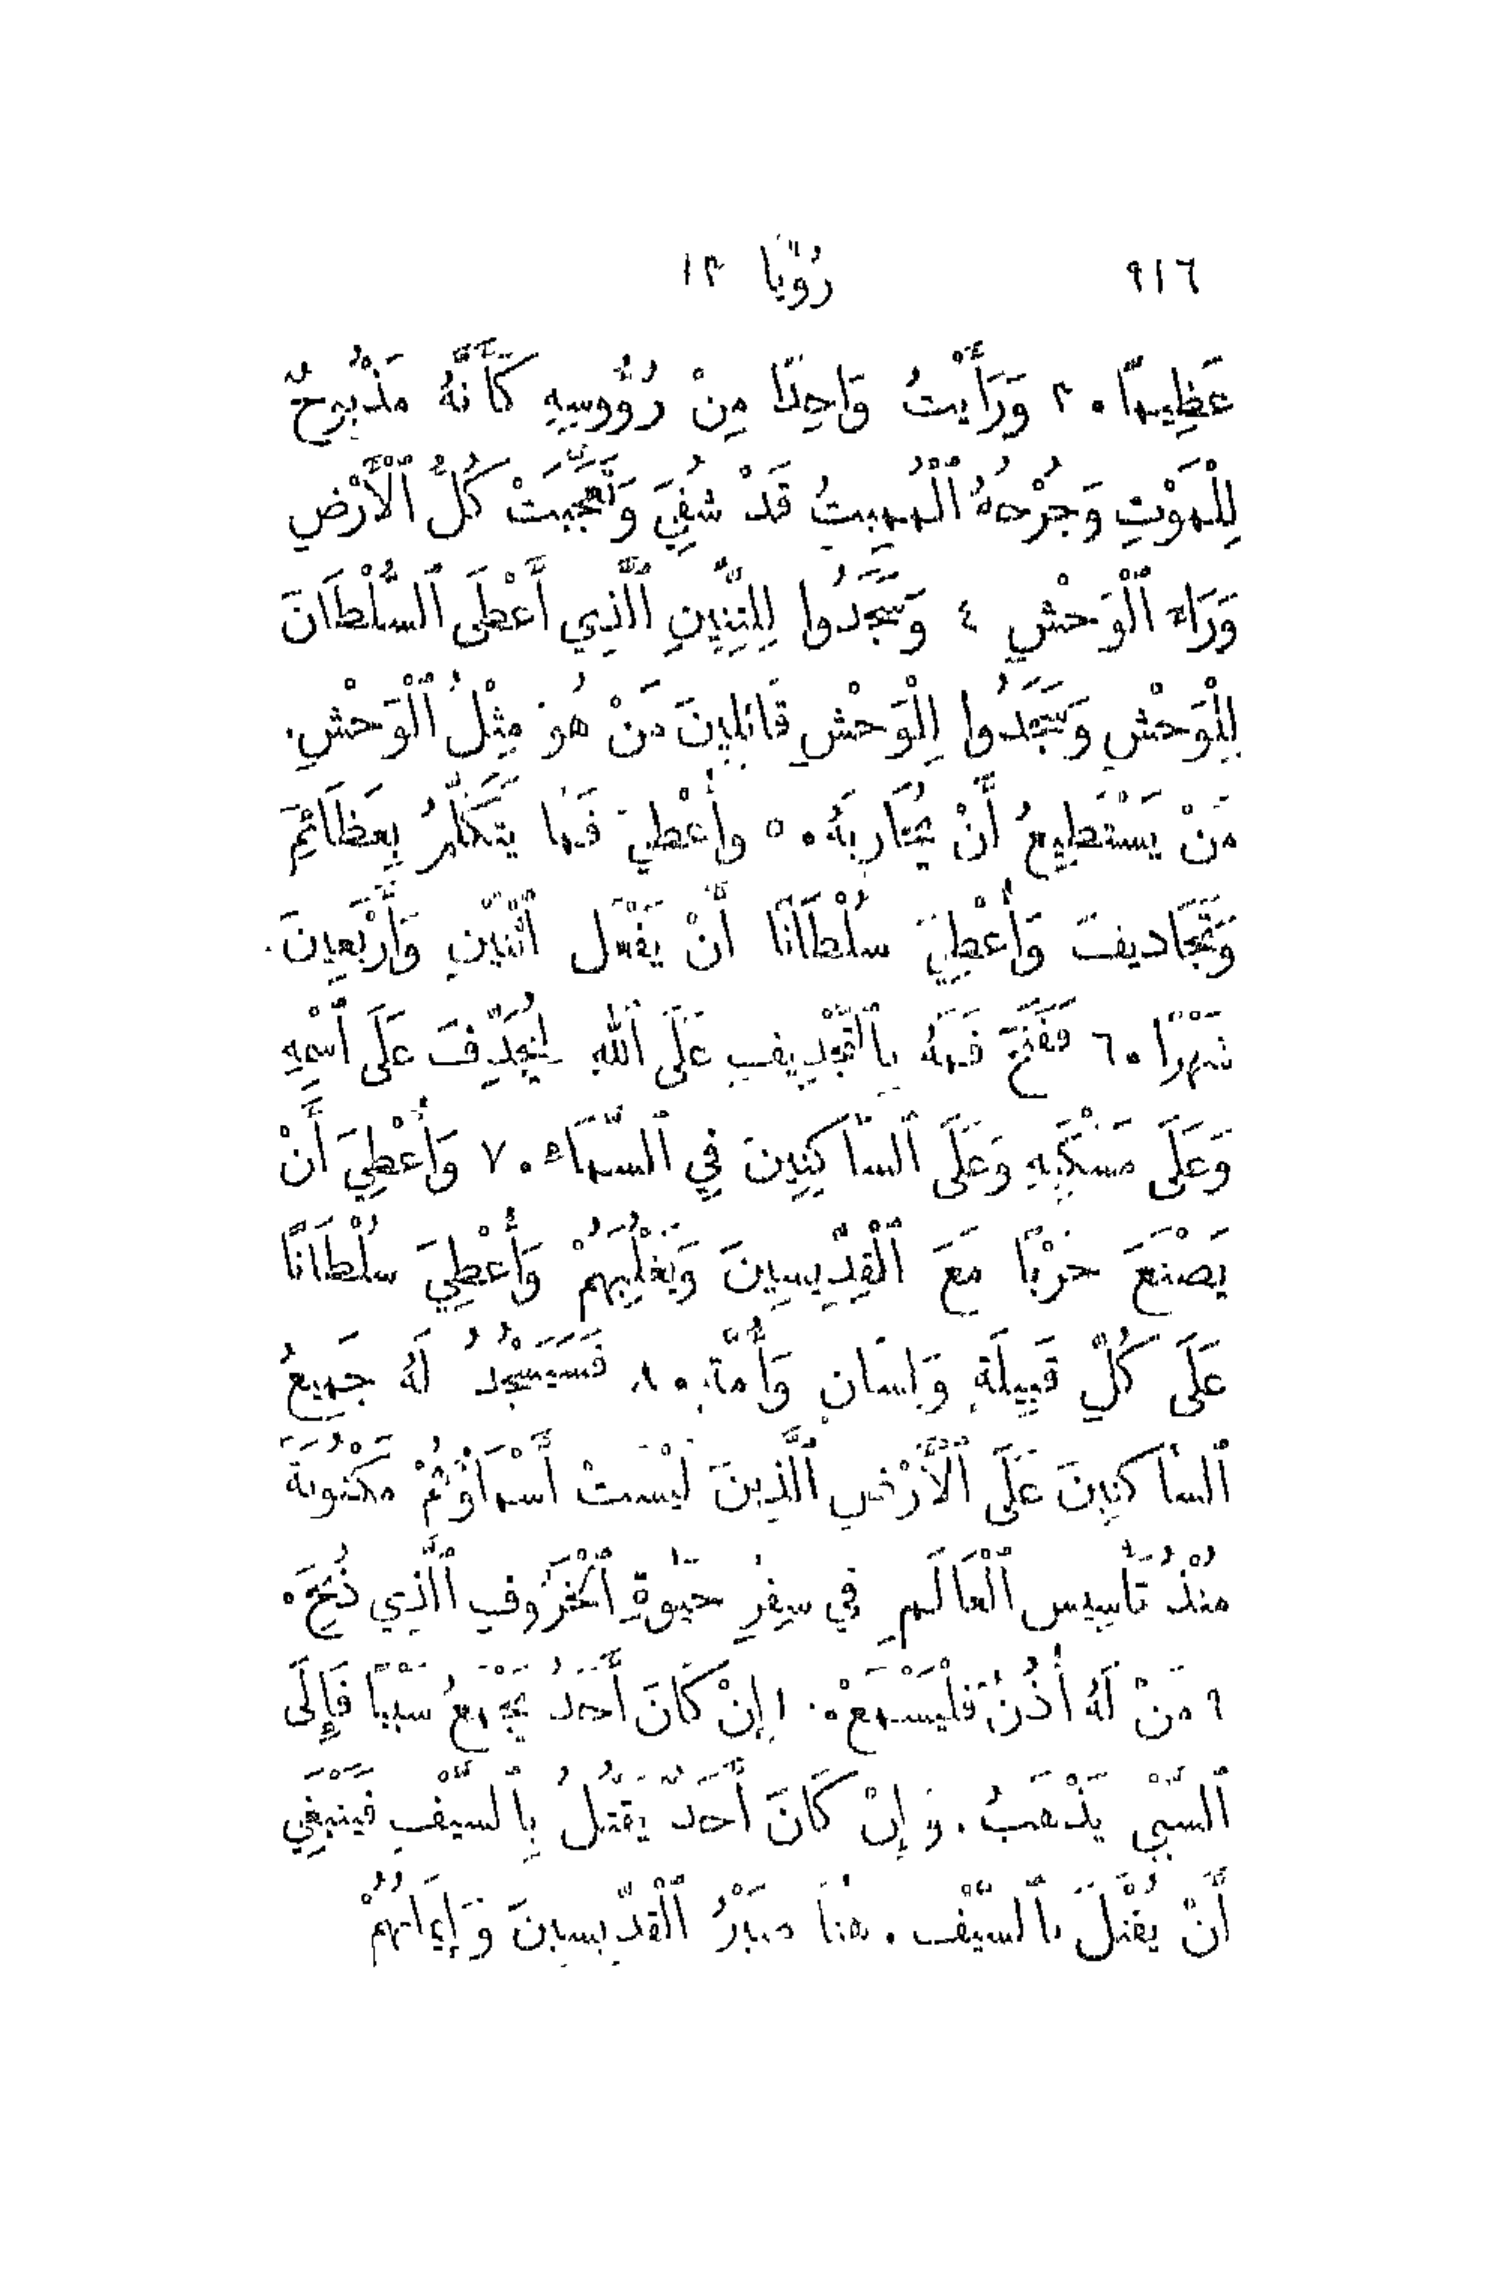 ٩١٦ رُؤْيَا ١٣
عَظِيمًا. ٣ وَرَأَيْتُ وَاحِدًا مِنْ رُؤُوسِهِ كَأَنَّهُ مَذْبُوحٌ
لِلْمَوْتِ وَجُرْحُهُ ٱلْمُمِيتُ قَدْ شُفِيَ وَتَعَجَّبَتْ كُلُّ ٱلْأَرْضِ
وَرَاءَ ٱلْوَحْشِ ٤ وَسَجَدُوا لِلتِّنِّينِ ٱلَّذِي أَعْطَى ٱلسُّلْطَانَ
لِلْوَحْشِ وَسَجَدُوا لِلْوَحْشِ قَائِلِينَ مَنْ هُوَ مِثْلُ ٱلْوَحْشِ.
مَنْ يَسْتَطِيعُ أَنْ يُحَارِبَهُ. ٥ وَأُعْطِيَ فَمًا يَتَكَلَّمُ بِعَظَائِمَ
وَتَجَادِيفَ وَأُعْطِيَ سُلْطَانًا أَنْ يَفْعَل ٱثْنَيْنِ وَأَرْبَعِينَ
شَهْرًا. ٦ فَفَتَحَ فَمَهُ بِٱلتَّجْدِيفِ عَلَى ٱللهِ لِيُجَدِّفَ عَلَى ٱسْمِهِ
وَعَلَى مَسْكَنِهِ وَعَلَى ٱلسَّاكِنِينَ فِي ٱلسَّمَاءِ. ٧ وَأُعْطِيَ أَنْ
يَصْنَعَ حَرْبًا مَعَ ٱلْقِدِّيسِينَ وَيَغْلِبَهُمْ وَأُعْطِيَ سُلْطَانًا
عَلَى كُلِّ قَبِيلَةٍ وَلِسَانٍ وَأُمَّةٍ. ٨ فَسَيَسْجُدُ لَهُ جَمِيعُ
ٱلسَّاكِنِينَ عَلَى ٱلْأَرْضِ ٱلَّذِينَ لَيْسَتْ أَسْمَاؤُهُمْ مَكْتُوبَةً
مُنْذُ تَأْسِيسِ ٱلْعَالَمِ فِي سِفْرِ حَيٰوةِ ٱلْخَرُوفِ ٱلَّذِي ذُبِحَ.
٩ مَنْ لَهُ أُذُنٌ فَلْيَسْمَعْ. ١٠ إِنْ كَانَ أَحَدٌ يَجْمَعُ سَبْيًا فَإِلَى
ٱلسَّبْيِ يَذْهَبُ. وَإِنْ كَانَ أَحَدٌ يَقْتُلُ بِٱلسَّيْفِ فَيَنْبَغِي
أَنْ يُقْتَلَ بِٱلسَّيْفِ. هُنَا صَبْرُ ٱلْقِدِّيسِينَ وَإِيمَانُهُمْ